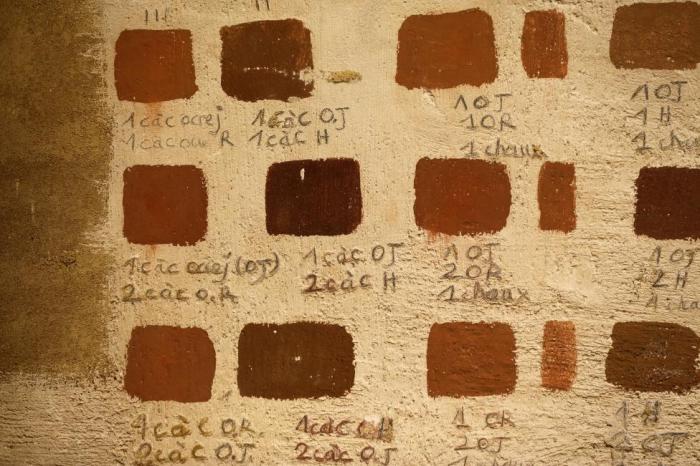 1 càc ocrej
1 càc ocre R
1 càc O.J
1 càc H
1 OJ
1 OR
1 chaux
1 OJ
1 H
1 chaux
1 càc ocrej (OJ)
2 càc O.R
1 càc OJ
2 càc H
1 OJ
2 OR
1 chaux
1 OJ
2 H
1 càc O.R.
2 càc O.J.
1 càc H
2 càc OJ
1 OR
2 OJ
1 H
2 OJ